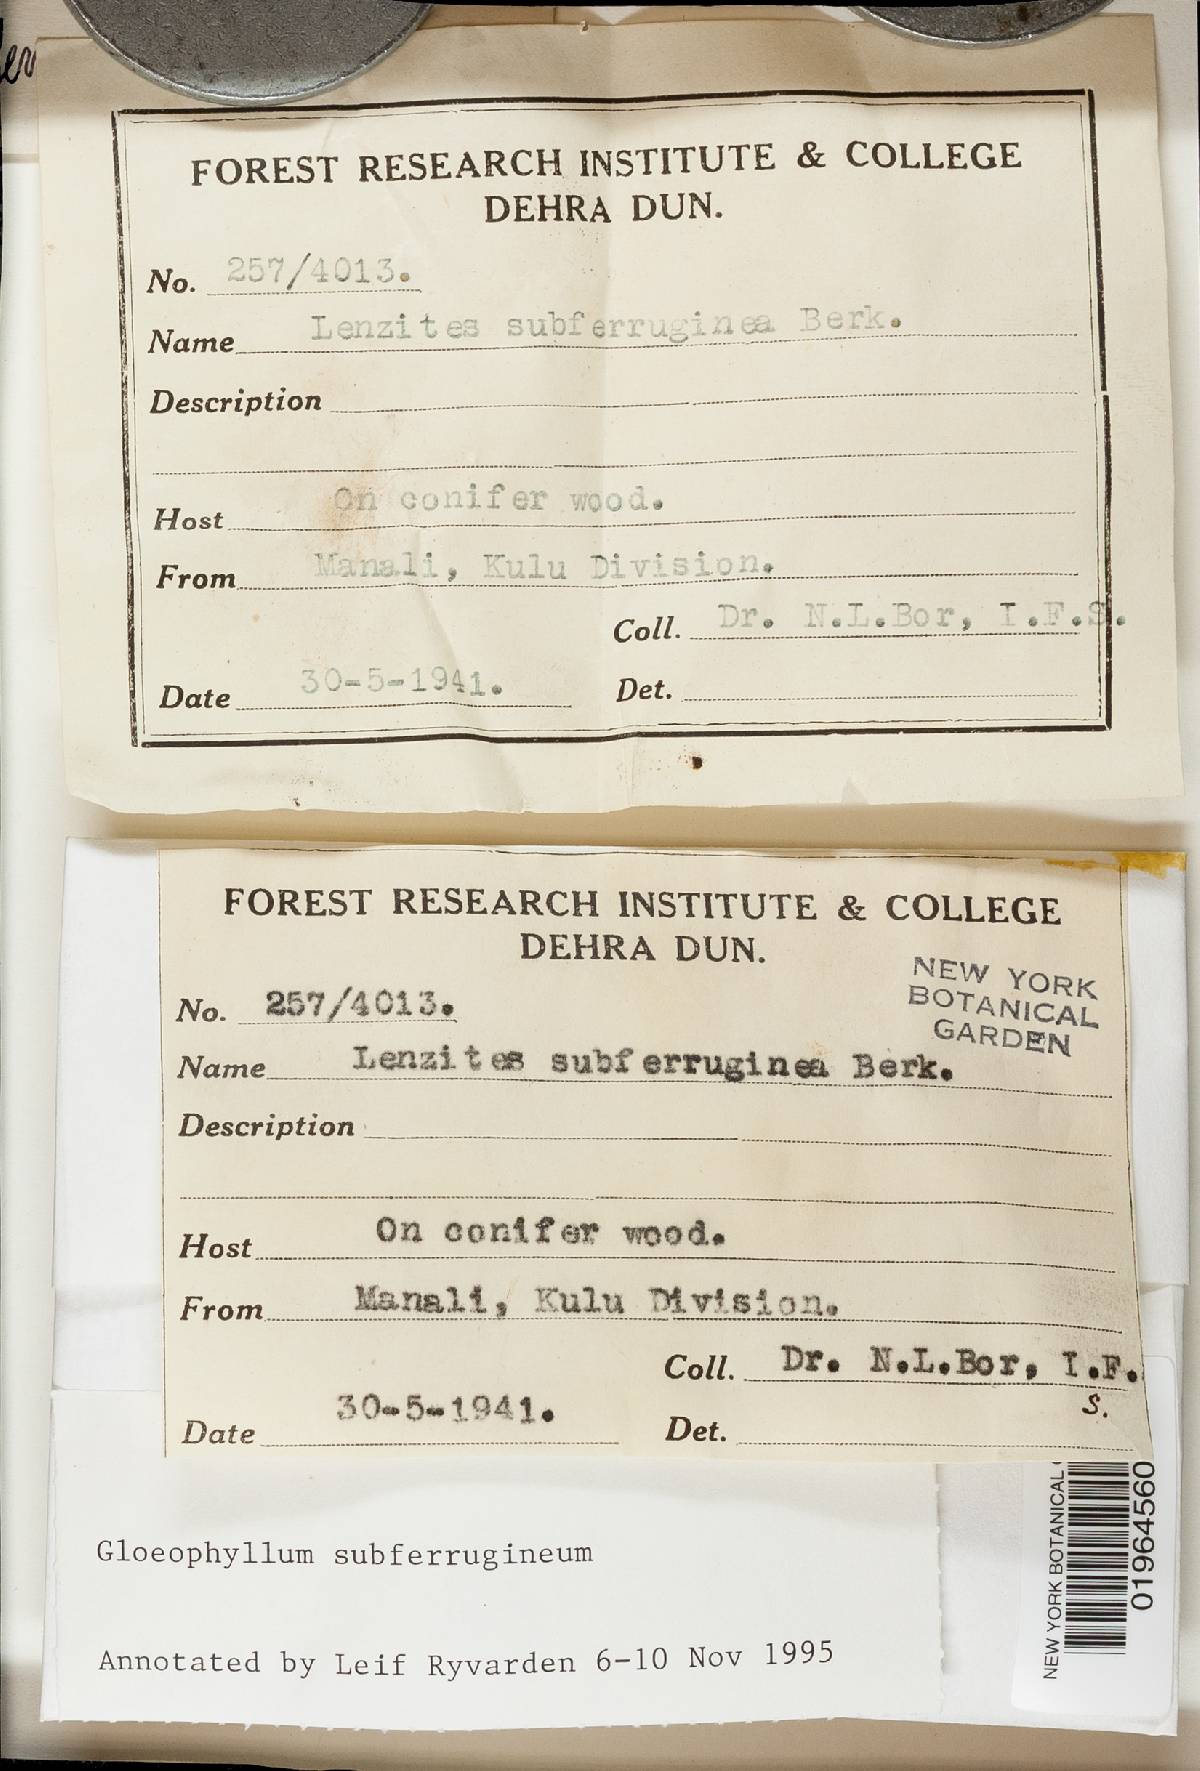 FOREST RESEARCH INSTITUTE & COLLEGE
DEHRA DUN.
No. 257/4013.
Name Lenzites subferruginea Berk.
Description
Host On conifer wood.
From Manali, Kulu Division.
Coll. Dr. N.L.Bor, I.F.S.
Date 30-5-1941. Det.
FOREST RESEARCH INSTITUTE & COLLEGE
DEHRA DUN.
NEW YORK
BOTANICAL
GARDEN
No. 257/4013.
Name Lenzites subferruginea Berk.
Description
Host On conifer wood.
From Manali, Kulu Division.
Coll. Dr. N.L.Bor, I.F.
S.
Date 30-5-1941. Det.
Gloeophyllum subferrugineum
Annotated by Leif Ryvarden 6-10 Nov 1995
NEW YORK BOTANICAL
01964560